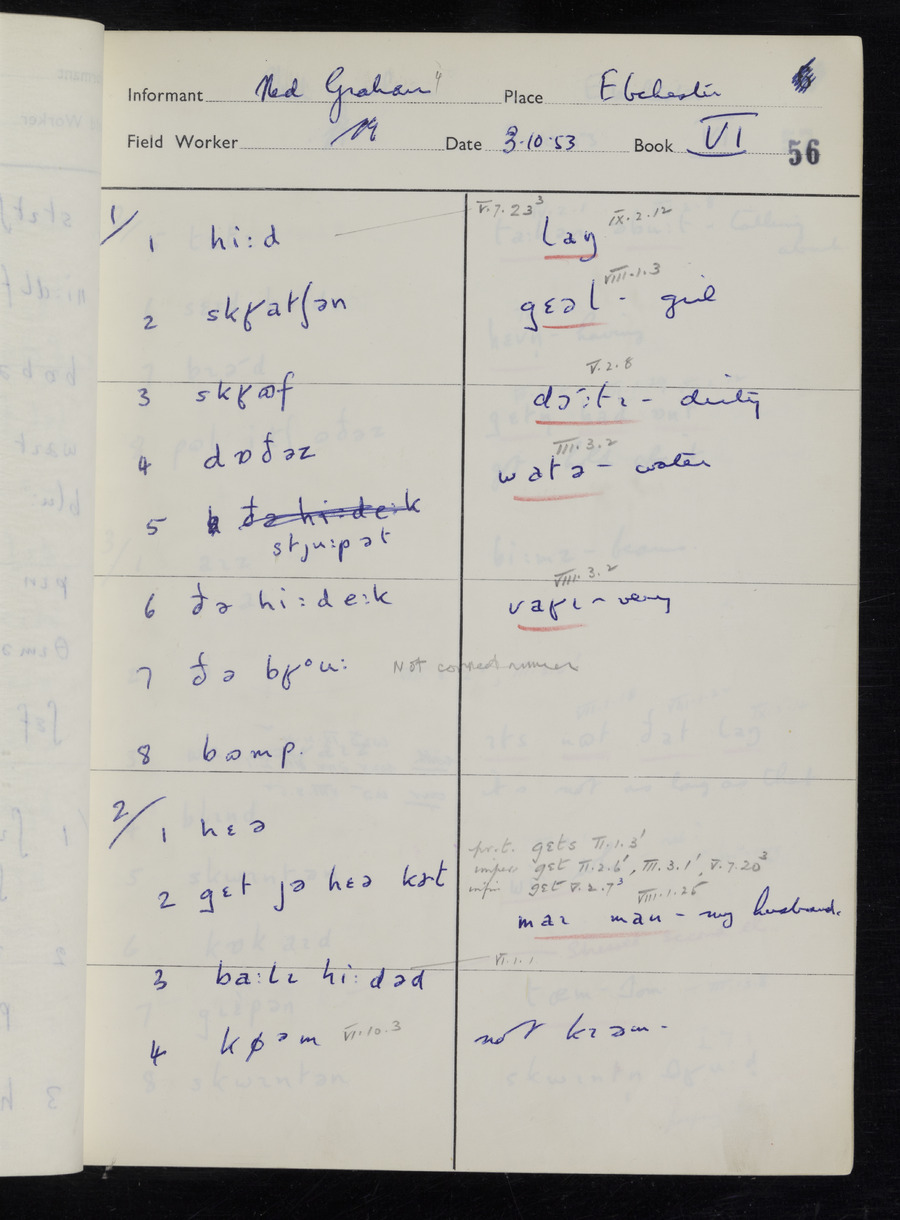 Informant Ned Graham Place Ebchester
Field Worker Date 3·10·53 Book VI 56
1/
1 hiːd V.7.23³
laŋ IX.2.12
2 skʁatʃən
gɛəl - girl VIII.1.3
3 skʁɷf
V.2.8
4 dɒðəz
III.3.2
watə - water
5 ðə hiːdeːk
stjuːpət
6 ðə hiːdeːk
VIII.3.2
vaʁɩ - very
7 ðə bʁᵒuː Not correct answer
8 bɷmp.
2/
1 hɛə
pr.t. gɛts II.1.3¹
imper. gɛt II.2.6¹, III.3.1¹, V.7.20³
infin. gɛt V.2.7³
2 gɛt jə hɛə kət
VIII.1.25
maɩ man - my husband.
3 baːlɩ hiːdəd VI.1.1
4 køəm VI.10.3 not kɩəm -